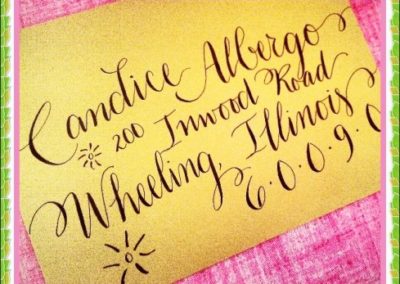 Candice Albergo
200 Inwood Road
Wheeling, Illinois
6·0·0·9·0